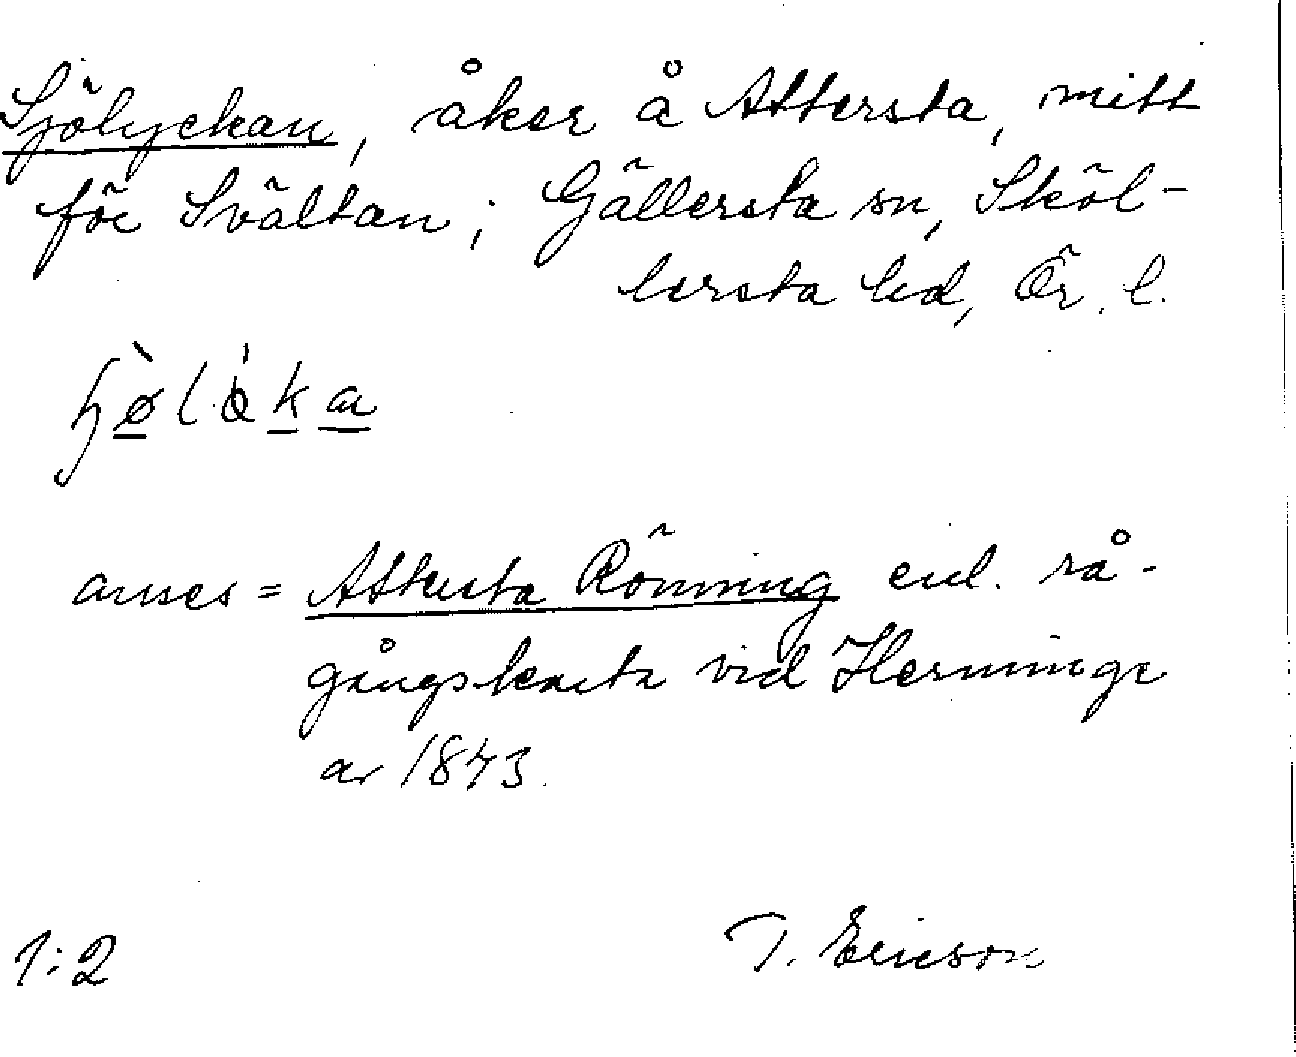 Sjölyckan, åker å Attersta, mitt
för Svältan; Gällersta sn, Sköl-
lersta hd, Ör. l.
anses = Attersta Rönning enl. rå-
gångskarta vid Herminge
av 1843.
1:2
T. Ericson